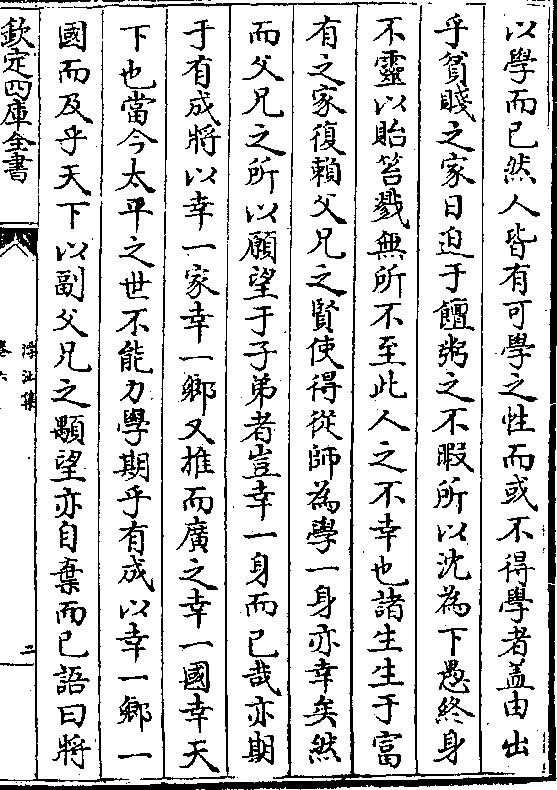 以學而已然人皆有可學之性而或不得學者盖由出
乎貧賤之家日迫于饘粥之不暇所以沈為下愚終身
不靈以貽笞戮無所不至此人之不幸也諸生生于富
有之家復賴父兄之賢使得從師為學一身亦幸矣然
而父兄之所以願望于子弟者豈幸一身而已哉亦期
于有成將以幸一家幸一鄉又推而廣之幸一國幸天
下也當今太平之世不能力學期乎有成以幸一鄉一
國而及乎天下以副父兄之顒望亦自棄而已語曰將
欽定四庫全書
卷六
二